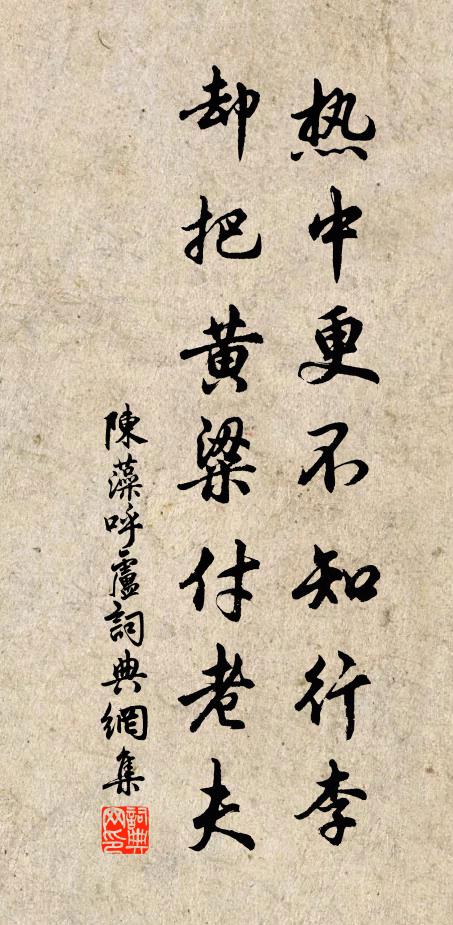 热中更不知行李
却把黄粱付老夫
陳藻呼盧詞典網集
詞典网印